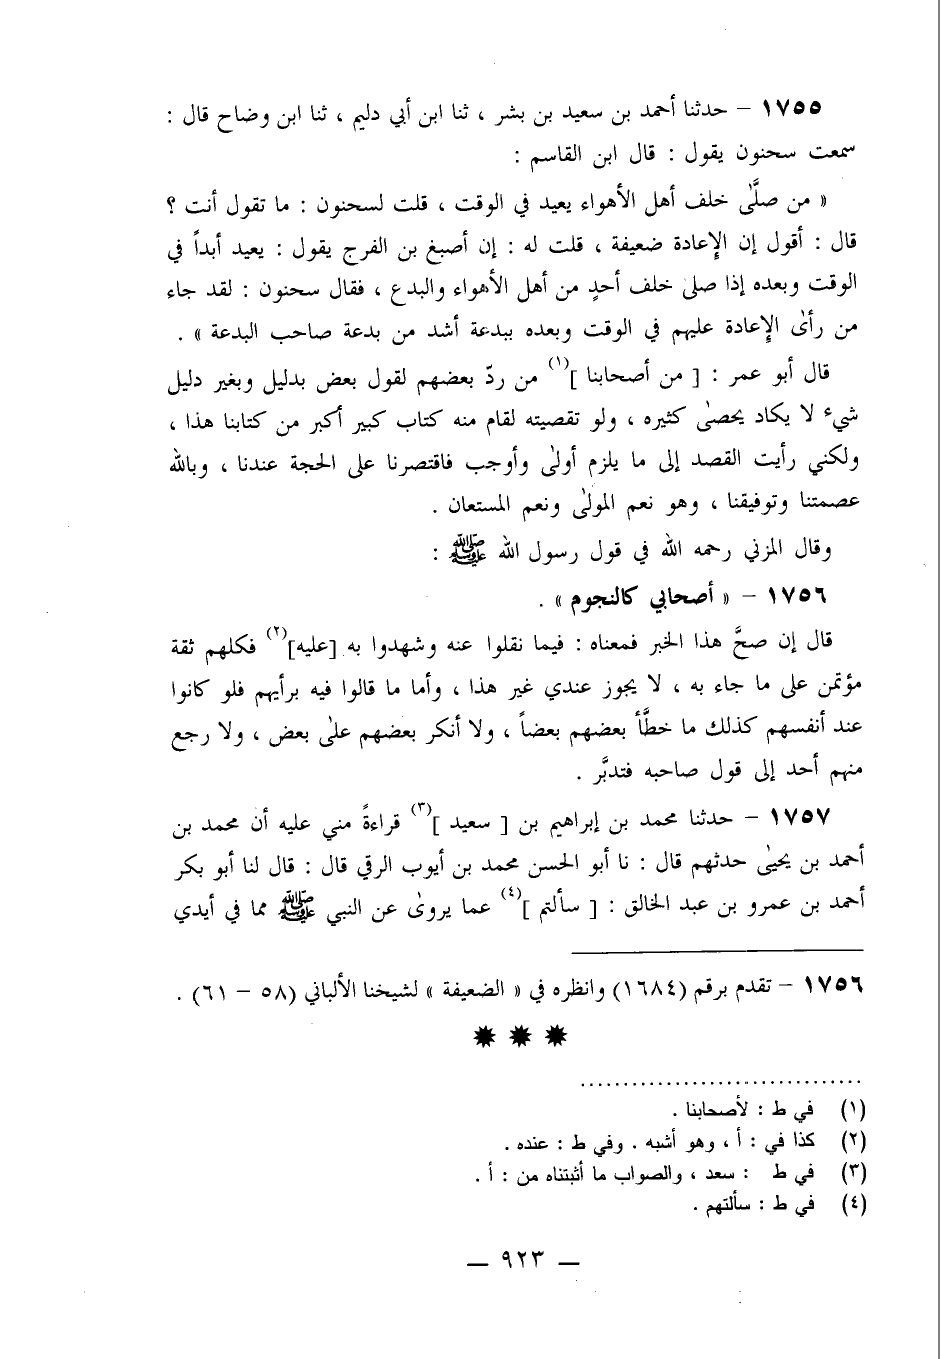 ١٧٥٥ – حدثنا أحمد بن سعيد بن بشر ، ثنا ابن أبي دليم ، ثنا ابن وضاح قال :
سمعت سحنون يقول : قال ابن القاسم :
« من صلَّىٰ خلف أهل الأهواء يعيد في الوقت ، قلت لسحنون : ما تقول أنت ؟
قال : أقول إن الإِعادة ضعيفة ، قلت له : إن أصبغ بن الفرج يقول : يعيد أبداً في
الوقت وبعده إذا صلىٰ خلف أحدٍ من أهل الأهواء والبدع ، فقال سحنون : لقد جاء
من رأىٰ الإِعادة عليهم في الوقت وبعده ببدعة أشد من بدعة صاحب البدعة » .
قال أبو عمر : [ من أصحابنا ](١) من ردّ بعضهم لقول بعض بدليل وبغير دليل
شيء لا يكاد يحصىٰ كثيره ، ولو تقصيته لقام منه كتاب كبير أكبر من كتابنا هذا ،
ولكني رأيت القصد إلى ما يلزم أولىٰ وأوجب فاقتصرنا على الحجة عندنا ، وبالله
عصمتنا وتوفيقنا ، وهو نعم المولىٰ ونعم المستعان .
وقال المزني رحمه الله في قول رسول الله ﷺ :
١٧٥٦ – « أصحابي كالنجوم » .
قال إن صحَّ هذا الخبر فمعناه : فيما نقلوا عنه وشهدوا به [عليه](٢) فكلهم ثقة
مؤتمن على ما جاء به ، لا يجوز عندي غير هذا ، وأما ما قالوا فيه برأيهم فلو كانوا
عند أنفسهم كذلك ما خطَّأ بعضهم بعضاً ، ولا أنكر بعضهم علىٰ بعض ، ولا رجع
منهم أحد إلى قول صاحبه فتدبَّر .
١٧٥٧ – حدثنا محمد بن إبراهيم بن [ سعيد ](٣) قراءةً مني عليه أن محمد بن
أحمد بن يحيىٰ حدثهم قال : نا أبو الحسن محمد بن أيوب الرقي قال : قال لنا أبو بكر
أحمد بن عمرو بن عبد الخالق : [ سألتم ](٤) عما يروىٰ عن النبي ﷺ مما في أيدي
١٧٥٦ – تقدم برقم (١٦٨٤) وانظره في « الضعيفة » لشيخنا الألباني (٥٨ – ٦١) .
(١) في ط : لأصحابنا .
(٢) كذا في : أ ، وهو أشبه . وفي ط : عنده .
(٣) في ط : سعد ، والصواب ما أثبتناه من : أ .
(٤) في ط : سألتهم .
— ٩٢٣ —